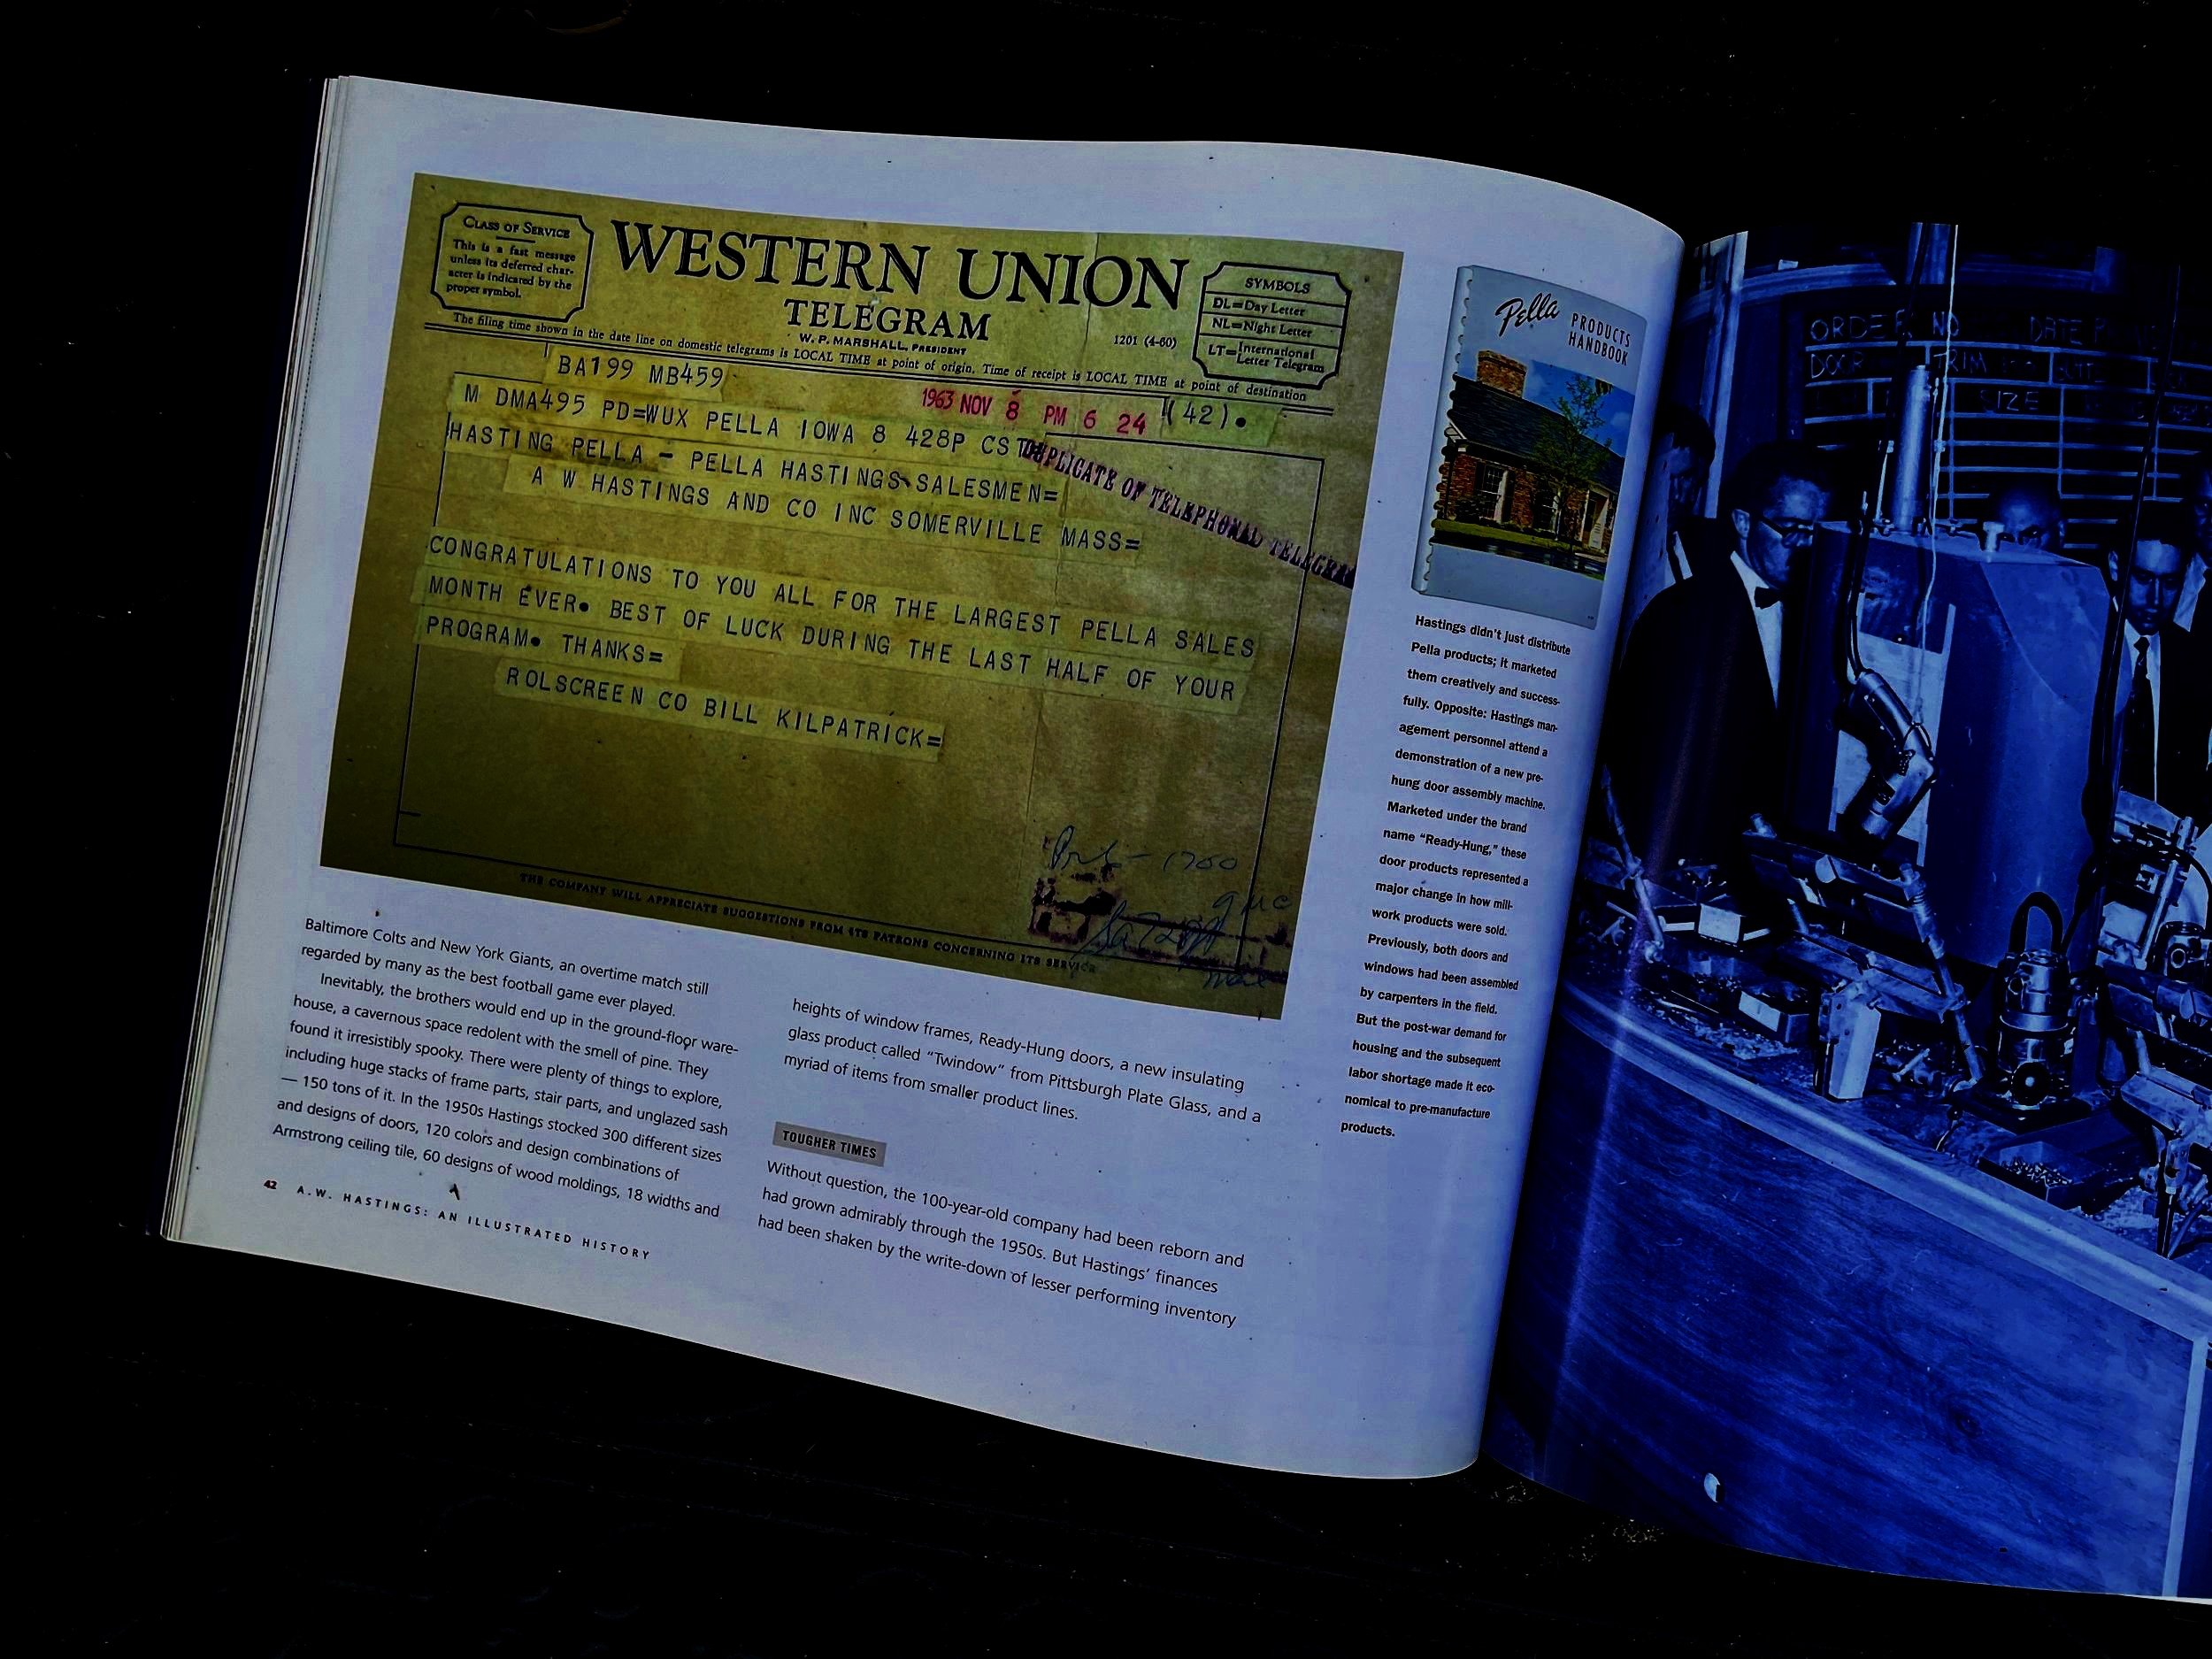 CLASS OF SERVICE
This is a fast message
unless its deferred char-
acter is indicated by the
proper symbol.
WESTERN UNION
TELEGRAM
W. P. MARSHALL, PRESIDENT
1201 (4-60)
SYMBOLS
DL=Day Letter
NL=Night Letter
LT=International
Letter Telegram
The filing time shown in the date line on domestic telegrams is LOCAL TIME at point of origin. Time of receipt is LOCAL TIME at point of destination
BA199 MB459
1963 NOV 8 PM 6 24
(42)•
M DMA495 PD=WUX PELLA IOWA 8 428P CST
DUPLICATE OF TELEPHONED TELEGRAM
HASTING PELLA - PELLA HASTINGS SALESMEN=
A W HASTINGS AND CO INC SOMERVILLE MASS=
CONGRATULATIONS TO YOU ALL FOR THE LARGEST PELLA SALES
MONTH EVER• BEST OF LUCK DURING THE LAST HALF OF YOUR
PROGRAM• THANKS=
ROLSCREEN CO BILL KILPATRICK=
THE COMPANY WILL APPRECIATE SUGGESTIONS FROM ITS PATRONS CONCERNING ITS SERVICE
Baltimore Colts and New York Giants, an overtime match still
regarded by many as the best football game ever played.
Inevitably, the brothers would end up in the ground-floor ware-
house, a cavernous space redolent with the smell of pine. They
found it irresistibly spooky. There were plenty of things to explore,
including huge stacks of frame parts, stair parts, and unglazed sash
— 150 tons of it. In the 1950s Hastings stocked 300 different sizes
and designs of doors, 120 colors and design combinations of
Armstrong ceiling tile, 60 designs of wood moldings, 18 widths and
heights of window frames, Ready-Hung doors, a new insulating
glass product called “Twindow” from Pittsburgh Plate Glass, and a
myriad of items from smaller product lines.
TOUGHER TIMES
Without question, the 100-year-old company had been reborn and
had grown admirably through the 1950s. But Hastings’ finances
had been shaken by the write-down of lesser performing inventory
42 A.W. HASTINGS: AN ILLUSTRATED HISTORY
Pella PRODUCTS
HANDBOOK
Hastings didn’t just distribute
Pella products; it marketed
them creatively and success-
fully. Opposite: Hastings man-
agement personnel attend a
demonstration of a new pre-
hung door assembly machine.
Marketed under the brand
name “Ready-Hung,” these
door products represented a
major change in how mill-
work products were sold.
Previously, both doors and
windows had been assembled
by carpenters in the field.
But the post-war demand for
housing and the subsequent
labor shortage made it eco-
nomical to pre-manufacture
products.
ORDER NO
DOOR TRIM
SIZE